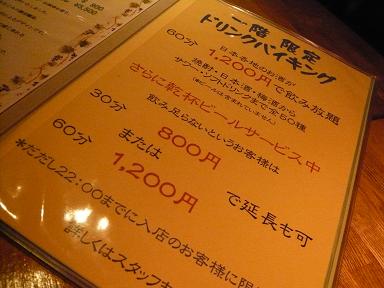 二階 限定
ドリンクバイキング
日本各地のお酒が
60分 1,200円で飲み放題
焼酎・日本酒・梅酒から
サワー・ソフトドリンクまで全50種
(※ビールは含まれていません)
さらに乾杯ビールサービス中
飲み足らないというお客様は
30分 800円
または
60分 1,200円 で延長も可
*ただし22:00までに入店のお客様に限
詳しくはスタッフ